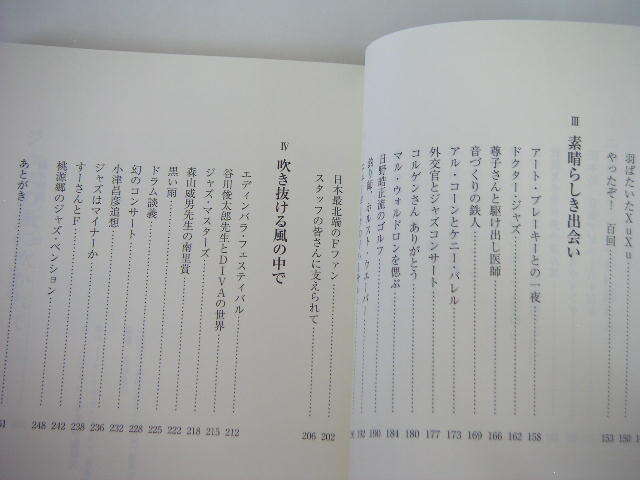 羽ばたいたXuXu 150
やったぞ! 百回 153
Ⅲ 素晴らしき出会い
アート・ブレーキーとの一夜 158
ドクター・ジャズ 162
尊子さんと駆け出し医師 166
音づくりの鉄人 169
アル・コーンとケニー・バレル 173
外交官とジャズコンサート 177
コルゲンさん ありがとう 180
マル・ウォルドロンを偲ぶ 184
日野皓正流のゴルフ 190
独り言、ホルスト・ウエーバー 192
日本最北端のFファン 202
スタッフの皆さんに支えられて 206
Ⅳ 吹き抜ける風の中で
エディンバラ・フェスティバル 212
谷川俊太郎先生とDIVAの世界 215
ジャズ・マスターズ 218
森山威男先生の南里賞 222
黒い雨 225
ドラム談義 228
幻のコンサート 232
小津昌彦追想 236
ジャズはマイナーか 238
すーさんとF 242
桃源郷のジャズ・ペンション 248
あとがき